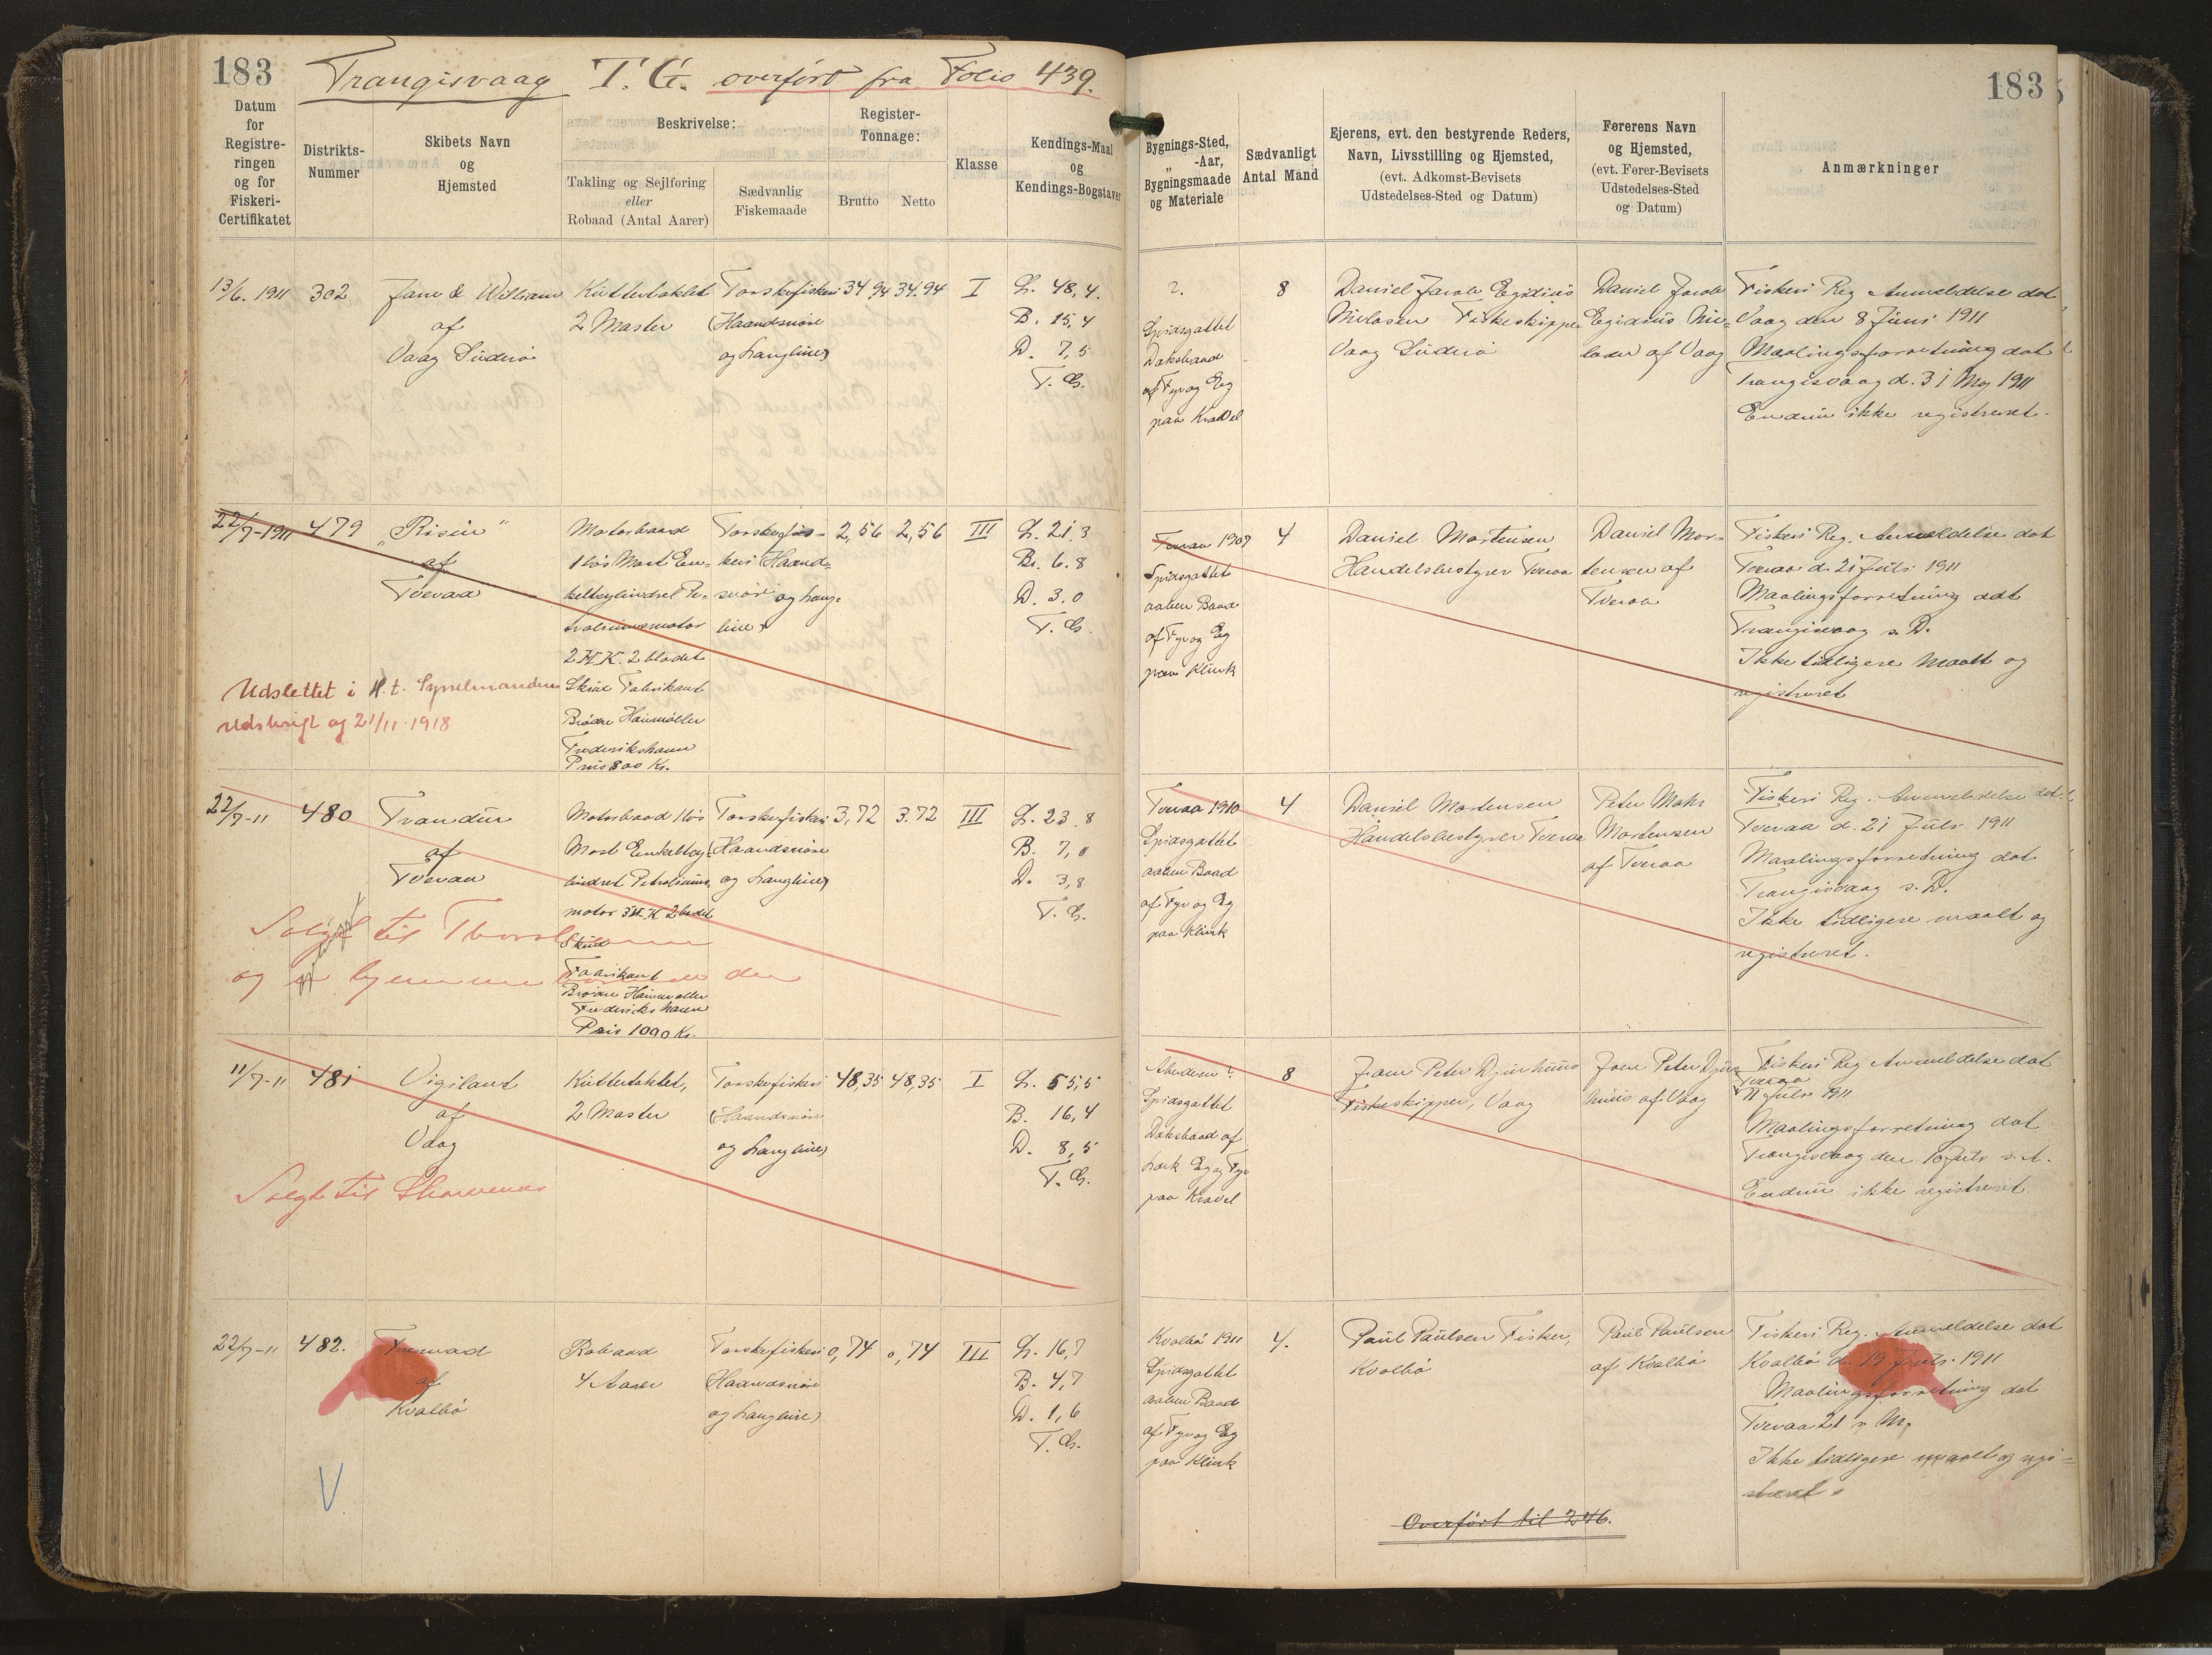 183
Trangisvaag T.G. overført fra Folio 439.
183
Datum
for
Registre-
ringen
og for
Fiskeri-
Certifikatet
Distrikts-
Nummer
Skibets Navn
og
Hjemsted
Beskrivelse:
Takling og Sejlforing
eller
Robaad (Antal Aarer)
Sædvanlig
Fiskemaade
Register-
Tonnage:
Brutto
Netto
Klasse
Kendings-Maal
og
Kendings-Bogstaver
Bygnings-Sted,
„ -Aar,
Bygningsmaade
og Materiale
Sædvanligt
Antal Mand
Ejerens, evt. den bestyrende Reders,
Navn, Livsstilling og Hjemsted,
(evt. Adkomst-Bevisets
Udstedelses-Sted og Datum)
Førerens Navn
og Hjemsted,
(evt. Fører-Bevisets
Udstedelses-Sted
og Datum)
Anmærkninger
13/6. 1911
302
Jane & William
af
Vaag Süderø
Kuttertaklet
2 Master
Torskefiskeri
(Haandsnøre
og Langline)
34 94
34.94
I
L. 48,4.
B. 15,4
D. 7,5
T. G.
?.
Spidsgattet
Dæksbaad
af Fyr og Eg
paa Kravel
8
Daniel Jacob Egidius
Nielasen Fiskeskipper
Vaag Süderø
Daniel Jacob
Egidius Nie-
lasen af Vaag
Fiskeri Reg Anmeldelse dat
Vaag den 8 Juni 1911
Maalingsforretning dat
Trangisvaag d. 31 Maj 1911
Endnu ikke registreret.
22/7-1911
479
„Risin“
af
Tveraa
Motorbaad
1 løs Mast En-
keltcylindret Pe-
troliumsmotor
2 H.K. 2 bladet
Skrue Fabrikant
Brødre Houmøller
Frederikshavn
Pris 800 Kr.
Torskefis-
keri (Haand-
snøre og Lang-
line)
2,56
2,56
III
L. 21,3
Br. 6.8
D. 3.0
T. G.
Udslettet i H.t. Sysselmandens
Udskrift og 21/11 1918
Tveraa 1907
Spidsgattet
aaben Baad
af Fyr og Eg
paa Klink
4
Daniel Mortensen
Handelsbestyrer Tveraa
Daniel Mor-
tensen af
Tveraa
Fiskeri Reg. Anmeldelse dat
Tveraa d. 21 Juli 1911
Maalingsforretning dat
Trangisvaag s. D.
Ikke tidligere maalt og
registreret
22/7-11
480
Trandur
af
Tveraa
Motorbaad 1 løs
Mast Enkeltcy-
lindret Petroliums-
motor 3 H.K 2 bladet
Skrue
Fabrikant
Brødre Houmøller
Frederikshavn
Pris 1000 Kr.
Torskefiskeri
(Haandsnøre
og Langline)
3,72
3.72
III
L. 23,8
B. 7,0
D. 3,8
T. G.
Solgt til
og
Tveraa 1910
Spidsgattet
aaben Baad
af Fyr og Eg
paa Klink
4
Daniel Mortensen
Handelsbestyrer Tveraa
Peter Mohr
Mortensen
af Tveraa
Fiskeri Reg. Anmeldelse dat.
Tveraa d. 21 Juli 1911
Maalingsforretning dat
Trangisvaag s. D.
Ikke tidligere maalt og
registreret.
11/7-11
481
Vigilant
af
Vaag
Kuttertaklet,
2 Master
Torskefiskeri
(Haandsnøre
og Langline)
48,35
48,35
I
L. 55,5
B. 16,4
D. 8,5
T. G.
Solgt til
Aberdeen ?
Spidsgattet
Dæksbaad af
Lærk Eg og Fyr
paa Kravel
8
Joen Peter Djurhuus
Fiskeskipper, Vaag
Joen Peter Djur-
huus af Vaag
Fiskeri Reg Anmeldelse dat
Tveraa
11 Juli 1911
Maalingsforretning dat
Trangisvaag den 10 Juli s. A.
Endnu ikke registreret.
22/7-11
482.
af
Kvalbø
Robaad
4 Aarer
Torskefiskeri
(Haandsnøre
og Langline)
0,74
0,74
III
L. 16,7
B. 4,7
D. 1,6
T. G.
V
Kvalbø 1911
Spidsgattet
aaben Baad
af Fyr og Eg
paa Klink
4.
Paul Paulsen Fisker,
Kvalbø
Paul Paulsen
af Kvalbø
Fiskeri Reg. Anmeldelse dat
Kvalbø d. 19 Juli 1911
Maalingsforretning dat
Tveraa 21 s. M.
Ikke tidligere maalt og regi-
streret.
Overført til 246.